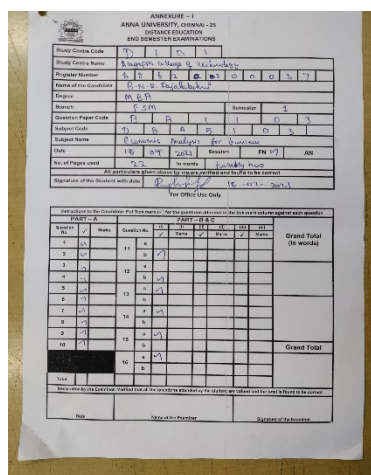 ANNEXURE – I
ANNA UNIVERSITY, CHENNAI - 25
DISTANCE EDUCATION
END SEMESTER EXAMINATIONS
Study Centre Code
Study Centre Name Alagappa College of Technology
Register Number
Name of the Candidate
Degree MBA
Branch FSM Semester 1
Question Paper Code
Subject Code D B A 5 1 0 3
Subject Name Economic Analysis for Business
Date 18 07 2021 Session FN AN
No. of Pages used 22 In words twenty two
All particulars given above by me are verified and found to be correct
Signature of the Student with date 18-07-2021
For Office Use Only
Instructions to the Candidate: Put tick mark (✓) for the questions attended in the tick mark column against each question
PART – A PART – B & C
Question No. ✓ Marks Question No. (i) (i) (ii) (ii) (iii) (iii) Grand Total (in words)
✓ Marks ✓ Marks ✓ Marks
1 11 a
2 b
3 12 a
4 b
5 13 a
6 b
7 14 a
8 b
9 15 a
10 b Grand Total
16 a
b
Total
Declaration by the Examiner: Verified that all the questions attended by the student are valued and the total is found to be correct
Date Name of the Examiner Signature of the Examiner